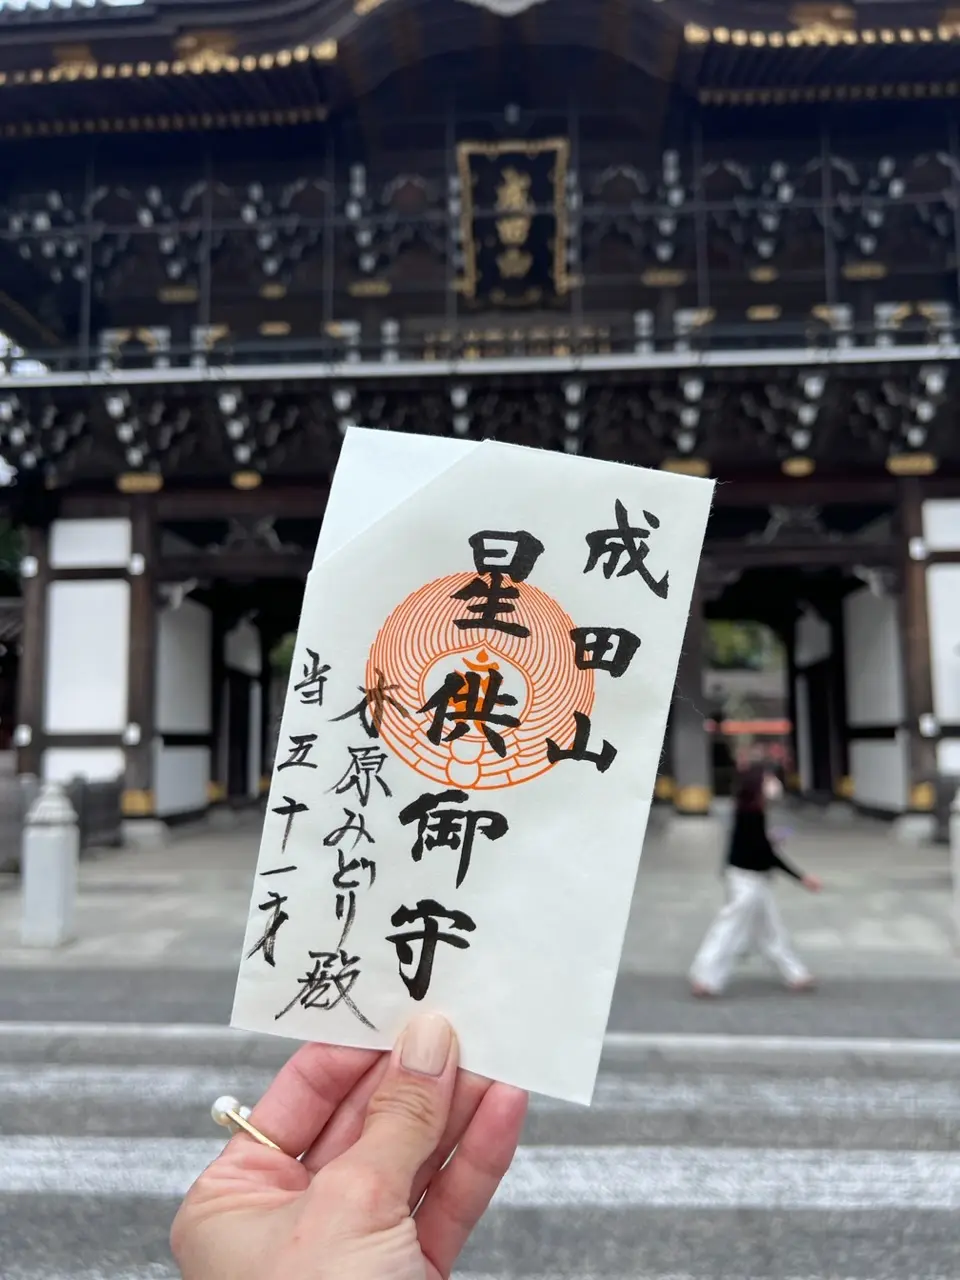 成田山
成田山
星供御守
木原みどり殿
当五十一才